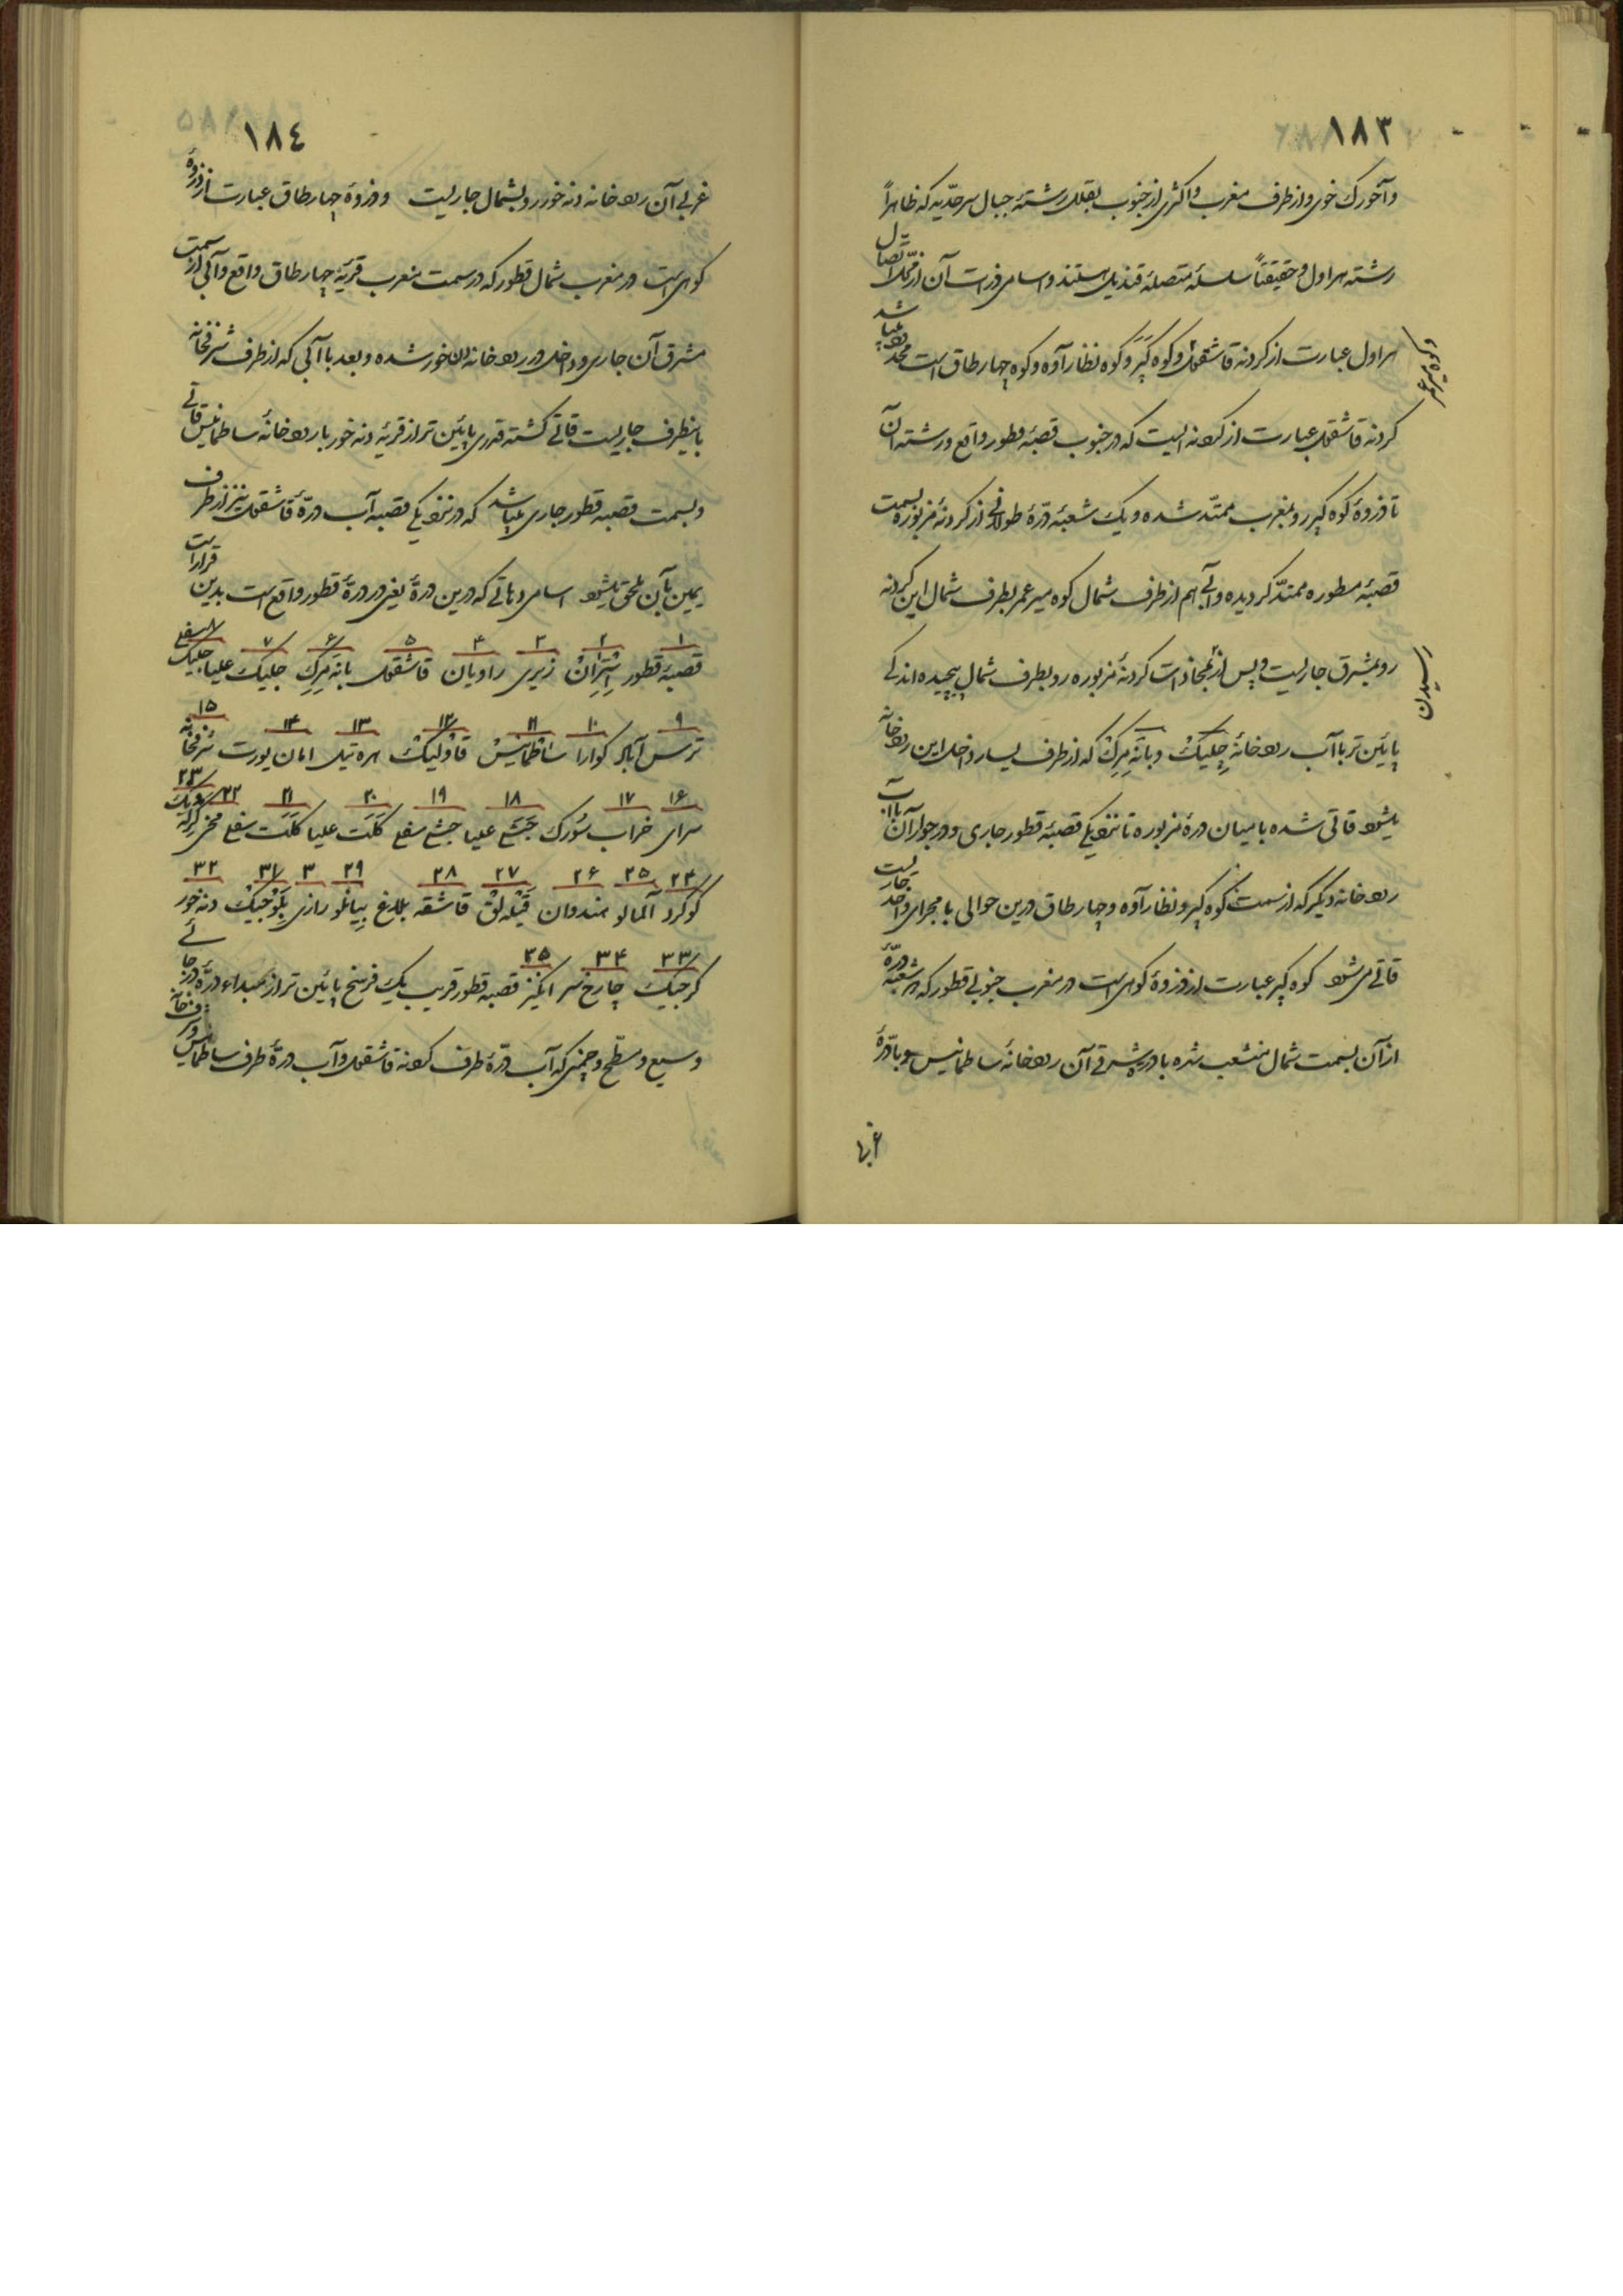 ١٨٣
وآخورك خوی و از طرف مغرب و اکثری از جنوب بقلل رشتهٔ جبال سرحدّیه که ظاهراً
رشته هراول و حقیقتاً سلسلهٔ متصلهٔ قندیل هستند و اسامی ذروات آن از محل اتصال
هراول عبارت از کردنه قاشقول و کوه کپر و کوه نظارآوه و کوه چهار طاق است محدود میباشد
و کوه میر عمر
کردنه قاشقول عبارت از کردنه ایست که در جنوب قصبهٔ قطور واقع و رشته آن
تا ذروهٔ کوه کپر رو بمغرب ممتد شده و یک شعبهٔ درّهٔ طولانی از کردنهٔ مزبوره بسمت
قصبهٔ مسطوره ممتدّ کردیده و آبی هم از طرف شمال کوه میر عمر بطرف شمال این کردنه
رو بشرق جاریست و پس از بمحاذات کردنهٔ مزبوره رو بطرف شمال پیچیده اندکی
رسیدن
پایین تر با آب رودخانهٔ جلیک و بانه مرک که از طرف یسار داخل این رودخانه
میشود قاتی شده با میان درهٔ مزبوره تا نزدیکی قصبهٔ قطور جاری و در جوار آن با آب
رودخانه دیگر که از سمت کوه کپر و نظارآوه و چهار طاق درین حوالی با مجرای واحد جاریست
قاتی می شود کوه کپر عبارت از ذروهٔ کوهی است در مغرب جنوبی قطور که هر شعبه درّهٔ
از آن بسمت شمال منشعب شده با درهٔ شرقی آن رودخانهٔ ساطمانیس و با درّهٔ
غربی
١٨٤
غربی آن رودخانه دنه خور رو بشمال جاریست و ذروهٔ چهار طاق عبارت از ذروهٔ
کوهی است در مغرب شمال قطور که در سمت مغرب قریهٔ چهار طاق واقع و آبی از سمت
مشرق آن جاری و داخل در رودخانه دنه خور شده و بعد با آبی که از طرف شرفخانه
باینطرف جاریست قاتی کشته قدری پایین تر از قریهٔ دنه خور با رودخانهٔ ساطمانیس قاتی
و بسمت قصبه قطور جاری میباشد که در نزدیکی قصبه آب درّهٔ قاشقول نیز از طرف
یمین بآن ملحق میشود اسامی دهاتی که درین درهٔ یعنی در درهٔ قطور واقع است بدین قرار است
١ ٢ ٣ ٤ ٥ ۶ ٧ ٨
قصبهٔ قطور استران زیری راویان قاشقول بانه مرک جلیک علیا جلیک سفلی
٩ ١٠ ١١ ١٢ ١٣ ١٤ ١٥
ترس آباد کوارا ساطمانیس قاولیک هره تیل امان یورت شرفخانه
١۶ ١٧ ١٨ ١٩ ٢٠ ٢١ ٢٢ ٢٣
سرای خراب سورک حبشی علیا حبشی سفلی کلت علیا کلت سفلی مخین
٢٤ ٢٥ ٢۶ ٢٧ ٢٨ ٢٩ ٣ ٣١ ٣٢
کوکرد آلمالو هندوان قیله لق قاشقه بلاغ بیانلو رازی بلوجیک دنه خور
٣٣ ٣٤ ٣٥
کرجیک چارخ سر انکیز قصبه قطور قریب یک فرسخ پایین تر از مبداء درّه در جائی
وسیع و مسطّح و چمنی که آب درّهٔ طرف کردنه قاشقول و آب درّهٔ طرف ساطمانیس